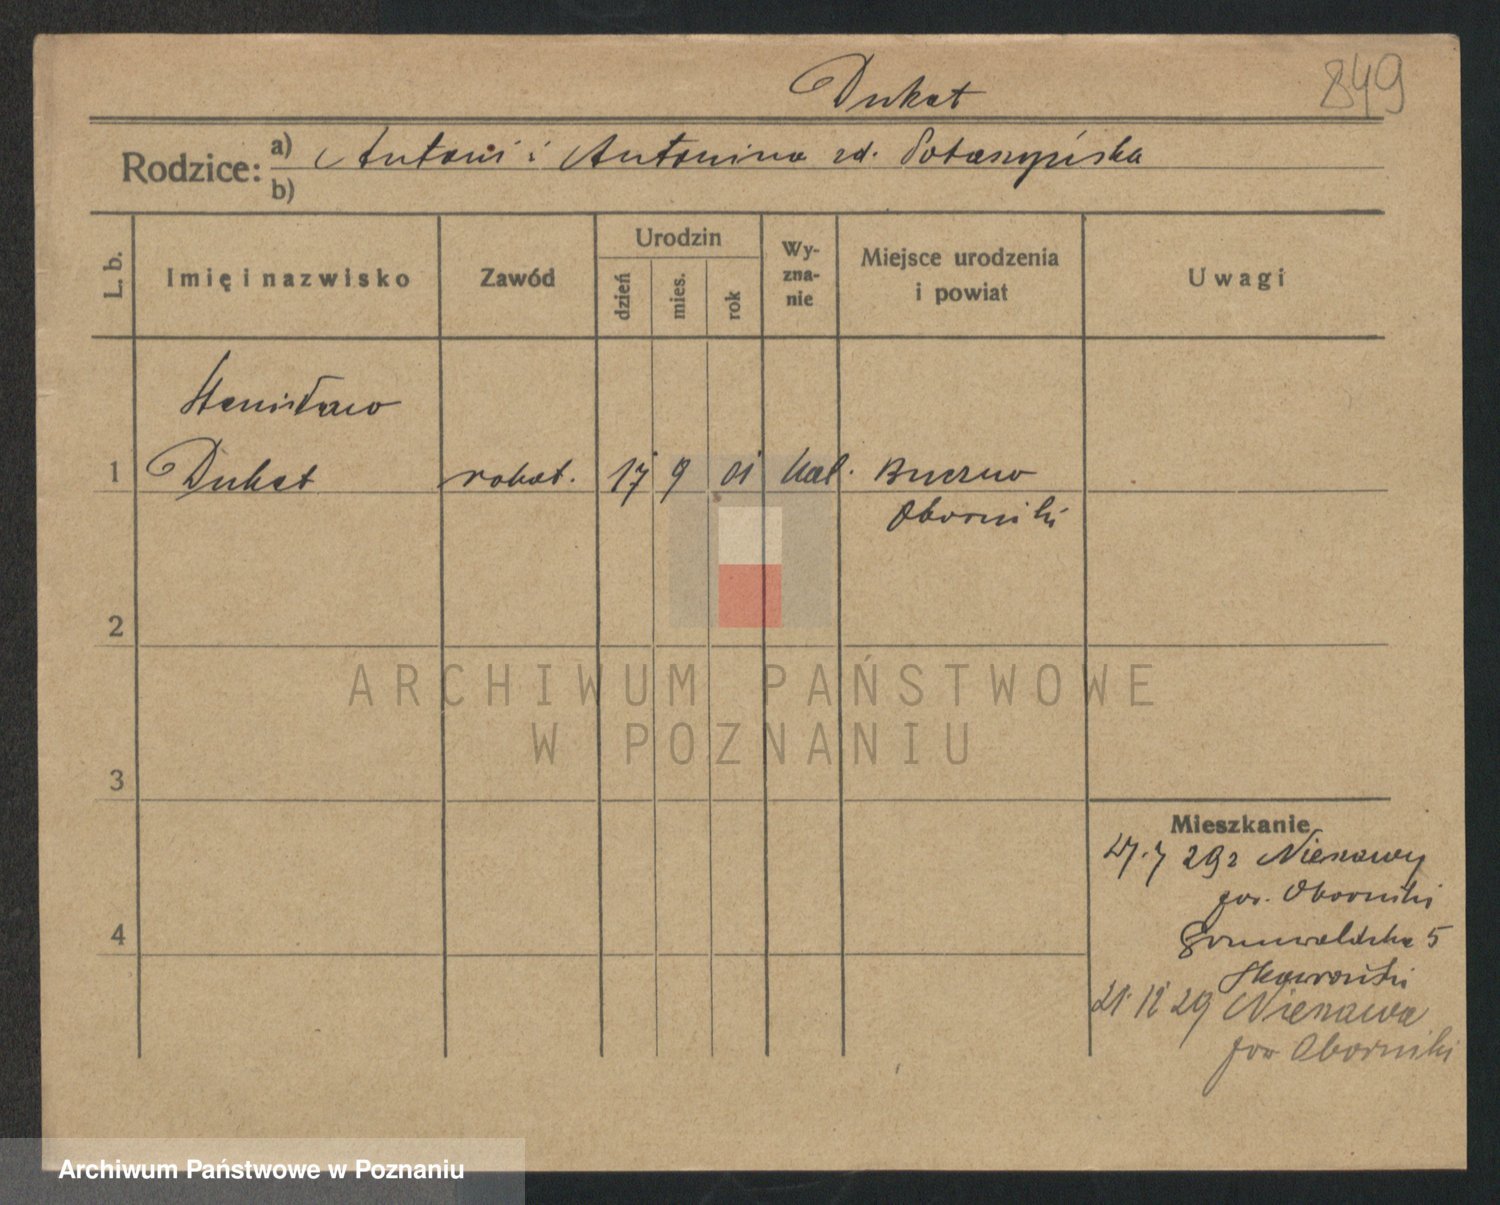 Dukat
849
Rodzice:
a) Antoni i Antonina zd. Potaszyńska
b)
L. b.
Imię i nazwisko
Zawód
Urodzin
dzień
mies.
rok
Wy-
zna-
nie
Miejsce urodzenia
i powiat
Uwagi
Stanisław
1 Dukat robot. 17 9 01 kat.
Oborniki
2
ARCHIWUM PAŃSTWOWE
W POZNANIU
3
Mieszkanie
27.7 29 z Nienawy
pow. Oborniki
4
Grunwaldzka 5
Skowroński
21 12 29 Nienawa
pow Oborniki
Archiwum Państwowe w Poznaniu